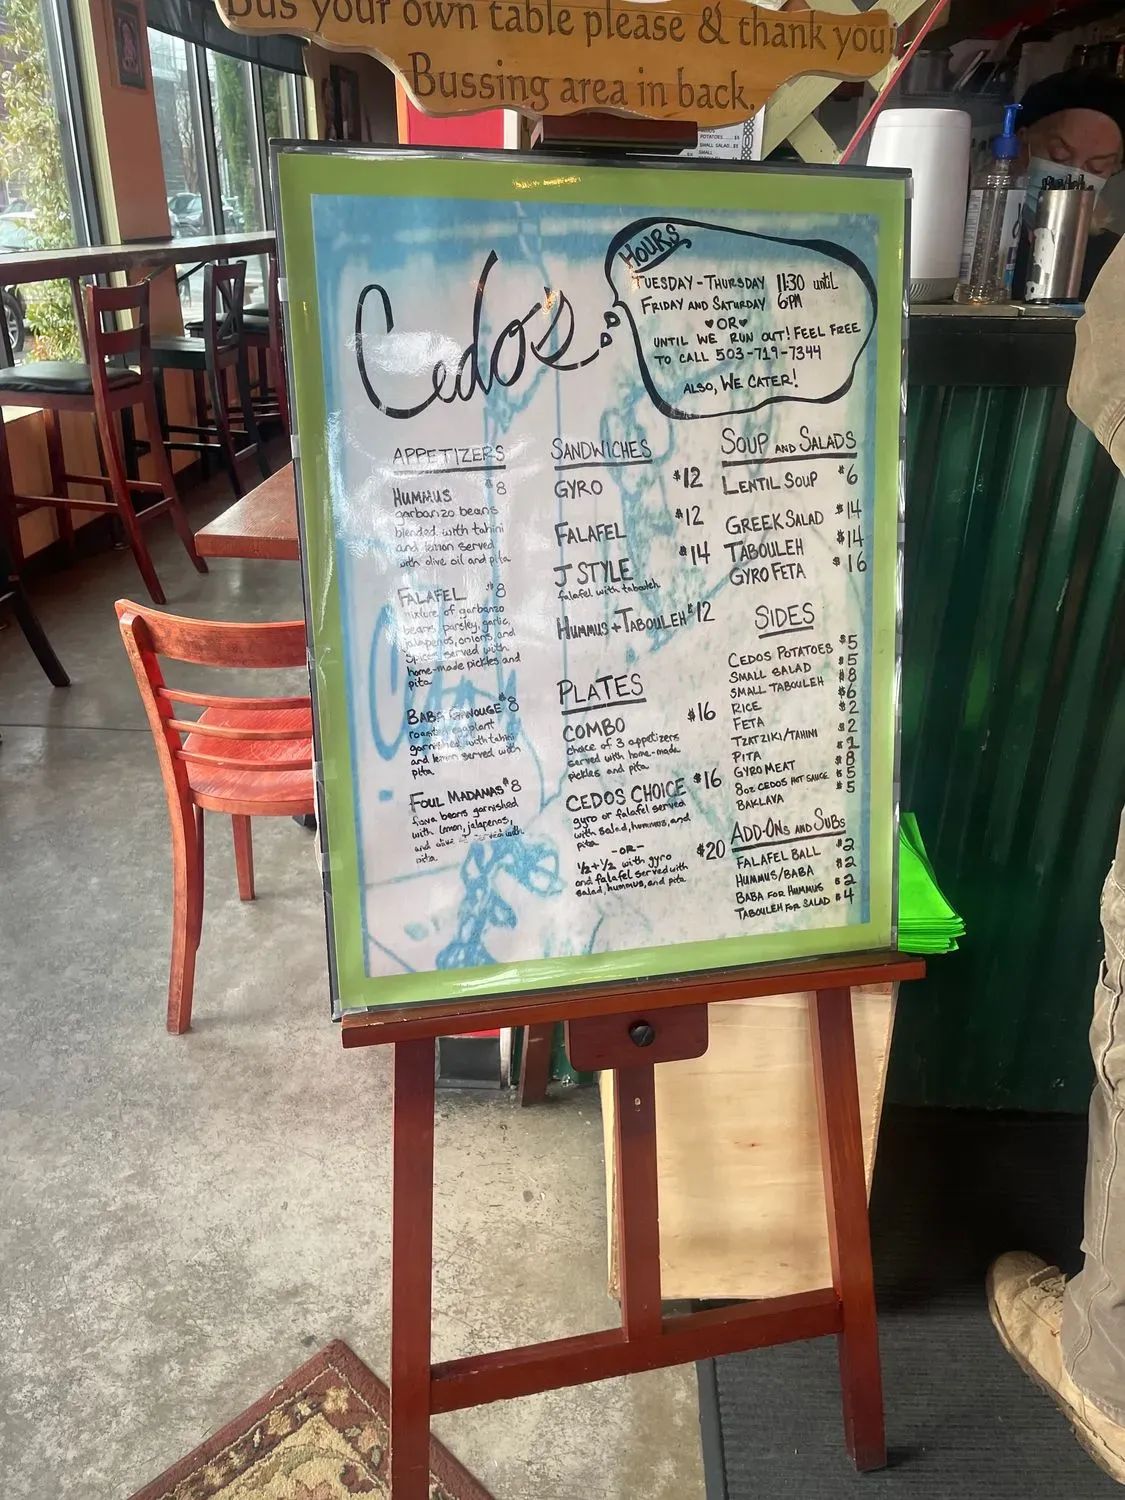 Bus your own table please & thank you!
Bussing area in back.
Cedo's
HOURS
TUESDAY - THURSDAY 11:30 until
FRIDAY AND SATURDAY 6PM
♥OR♥
UNTIL WE RUN OUT! FEEL FREE
TO CALL 503-719-7344
ALSO, WE CATER!
APPETIZERS
HUMMUS $8
garbanzo beans
blended with tahini
and lemon served
with olive oil and pita
FALAFEL $8
mixture of garbanzo
beans, parsley, garlic,
jalapenos, onions, and
spices served with
home-made pickles and
pita
BABA GANOUGE $8
roasted eggplant
garnished with tahini
and lemon served with
pita
FOUL MADAMAS $8
fava beans garnished
with lemon, jalapenos,
and olive served with
pita
SANDWICHES
GYRO $12
FALAFEL $12
J STYLE $14
falafel with tabouleh
HUMMUS + TABOULEH $12
PLATES
COMBO $16
choice of 3 appetizers
served with home-made
pickles and pita
CEDOS CHOICE $16
gyro or falafel served
with salad, hummus, and
pita
-OR-
1/2 + 1/2 with gyro $20
and falafel served with
salad, hummus, and pita
SOUP AND SALADS
LENTIL SOUP $6
GREEK SALAD $14
TABOULEH $14
GYRO FETA $16
SIDES
CEDOS POTATOES $5
SMALL SALAD $5
SMALL TABOULEH $8
RICE $6
FETA $2
TZATZIKI/TAHINI $2
PITA $1
GYRO MEAT $8
8oz CEDOS HOT SAUCE $5
BAKLAVA $5
ADD-ONS AND SUBS
FALAFEL BALL $2
HUMMUS/BABA $2
BABA FOR HUMMUS $2
TABOULEH FOR SALAD $4